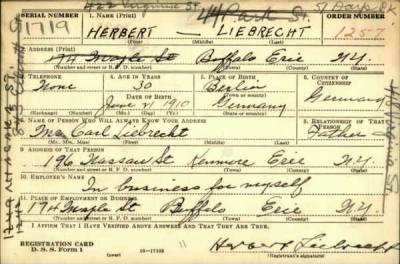 422 Virginia St. 44 Park St.
SERIAL NUMBER 1. NAME (Print) ORDER NUMBER
1719 HERBERT — LIEBRECHT 1257
(First) (Middle) (Last)
2. ADDRESS (Print)
174 Maple St Buffalo Erie N.Y.
(Number and street or R. F. D. number) (Town) (County) (State)
3. TELEPHONE 4. AGE IN YEARS 5. PLACE OF BIRTH 6. COUNTRY OF CITIZENSHIP
None 30 Berlin
DATE OF BIRTH
June 21 1910 Germany Germany
(Exchange) (Number) (Mo.) (Day) (Yr.) (Town or county) (State or country)
7. NAME OF PERSON WHO WILL ALWAYS KNOW YOUR ADDRESS 8. RELATIONSHIP OF THAT PERSON
Mr. Carl Liebrecht Father
(Mr., Mrs., Miss) (First) (Middle) (Last)
9. ADDRESS OF THAT PERSON
196 Nassau St Kenmore Erie N.Y.
(Number and street or R. F. D. number) (Town) (County) (State)
10. EMPLOYER'S NAME
In business for myself
11. PLACE OF EMPLOYMENT OR BUSINESS
174 Maple St Buffalo Erie N.Y.
(Number and street or R. F. D. number) (Town) (County) (State)
I AFFIRM THAT I HAVE VERIFIED ABOVE ANSWERS AND THAT THEY ARE TRUE.
REGISTRATION CARD
D. S. S. Form 1 16—17105 Herbert Liebrecht
(Registrant's signature)